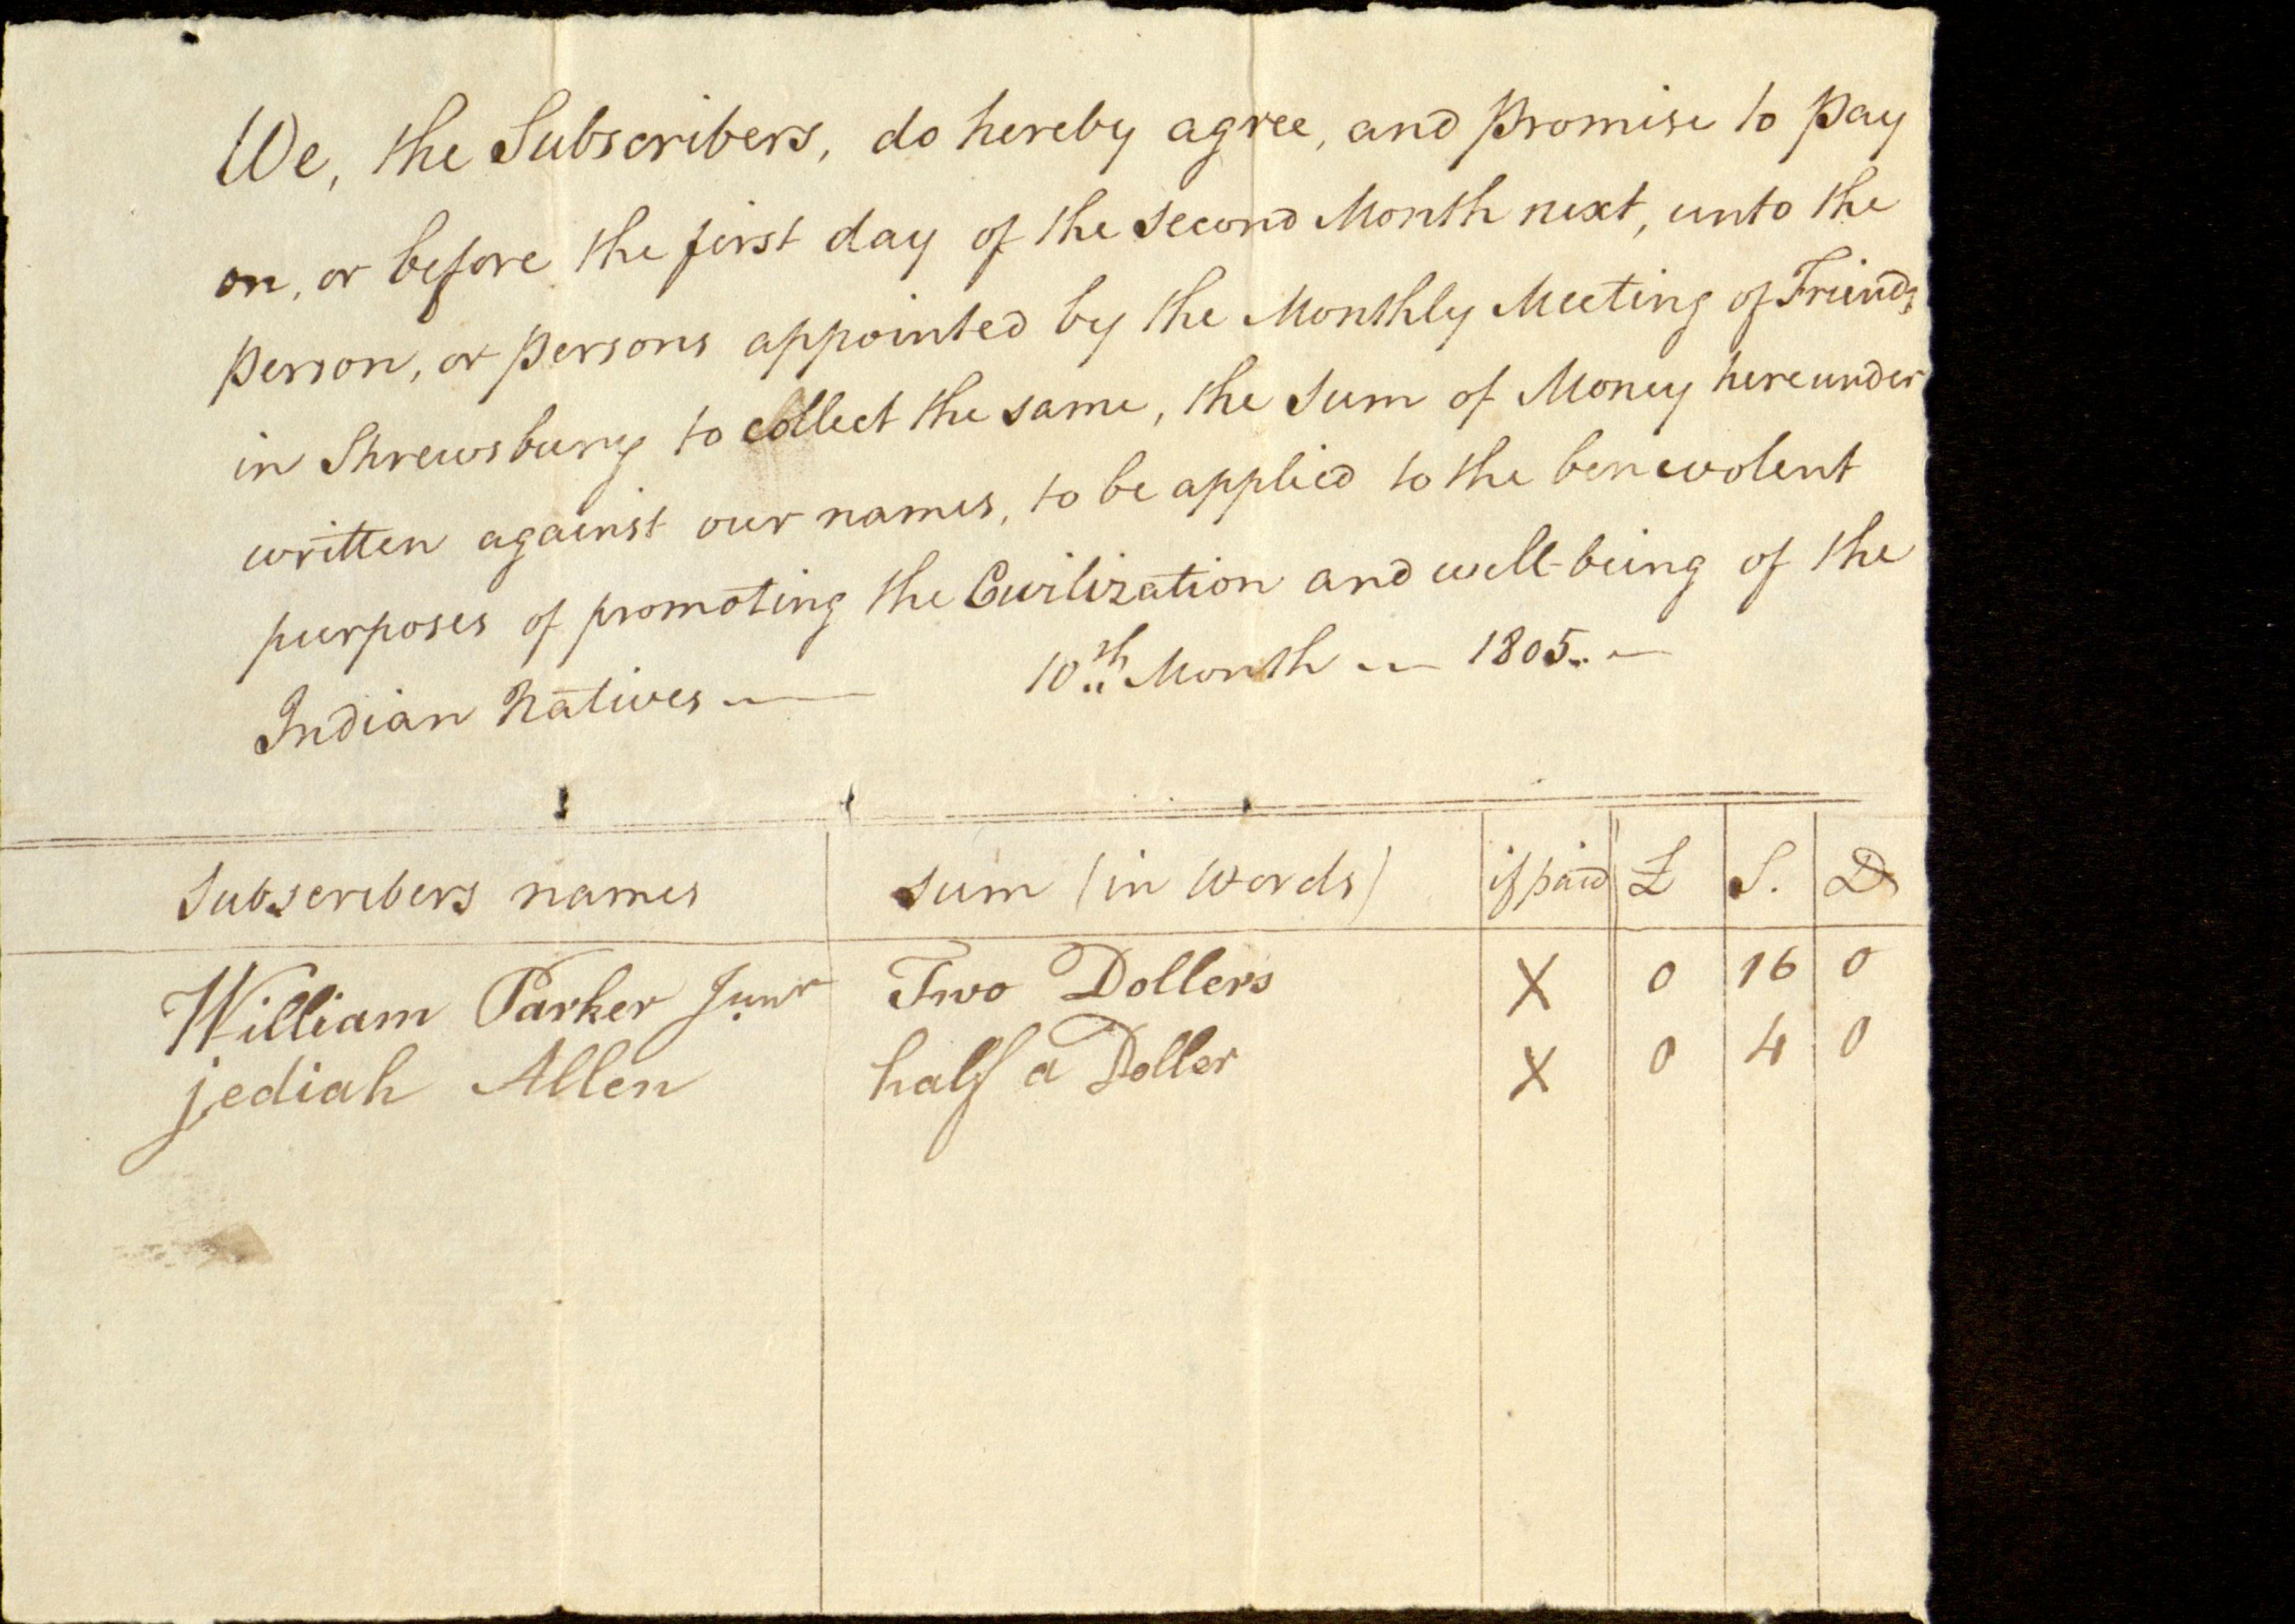 We, the Subscribers, do hereby agree, and promise to pay
on, or before the first day of the second Month next, unto the
person, or persons appointed by the Monthly Meeting of Friends
in Shrewsbury to collect the same, the sum of Money hereunder
written against our names, to be applied to the benevolent
purposes of promoting the Civilization and well-being of the
Indian Natives — 10th Month — 1805. —
Subscribers names sum (in words) if paid £ S. D
William Parker Junr Two Dollers X 0 16 0
jediah Allen half a Doller X 0 4 0